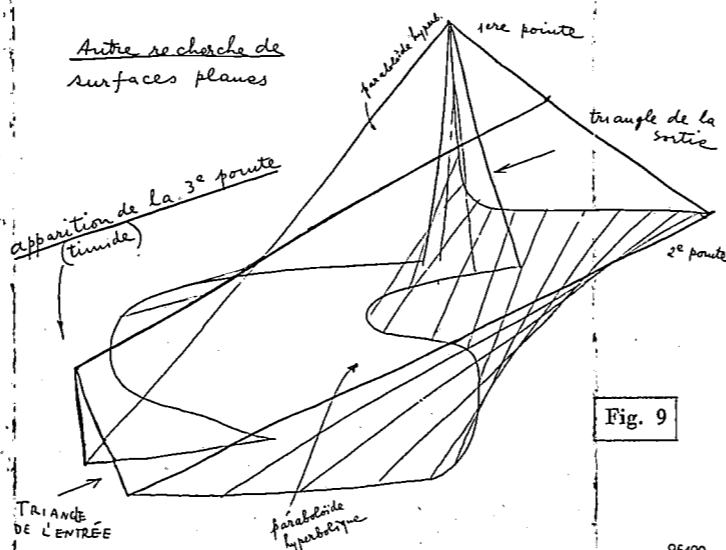 Autre recherche de
surfaces planes
paraboloïde hyperb.
1ere pointe
triangle de la
sortie
apparition de la 3e pointe
(timide)
2e pointe
Fig. 9
TRIANGLE
DE L'ENTRÉE
paraboloïde
hyperbolique